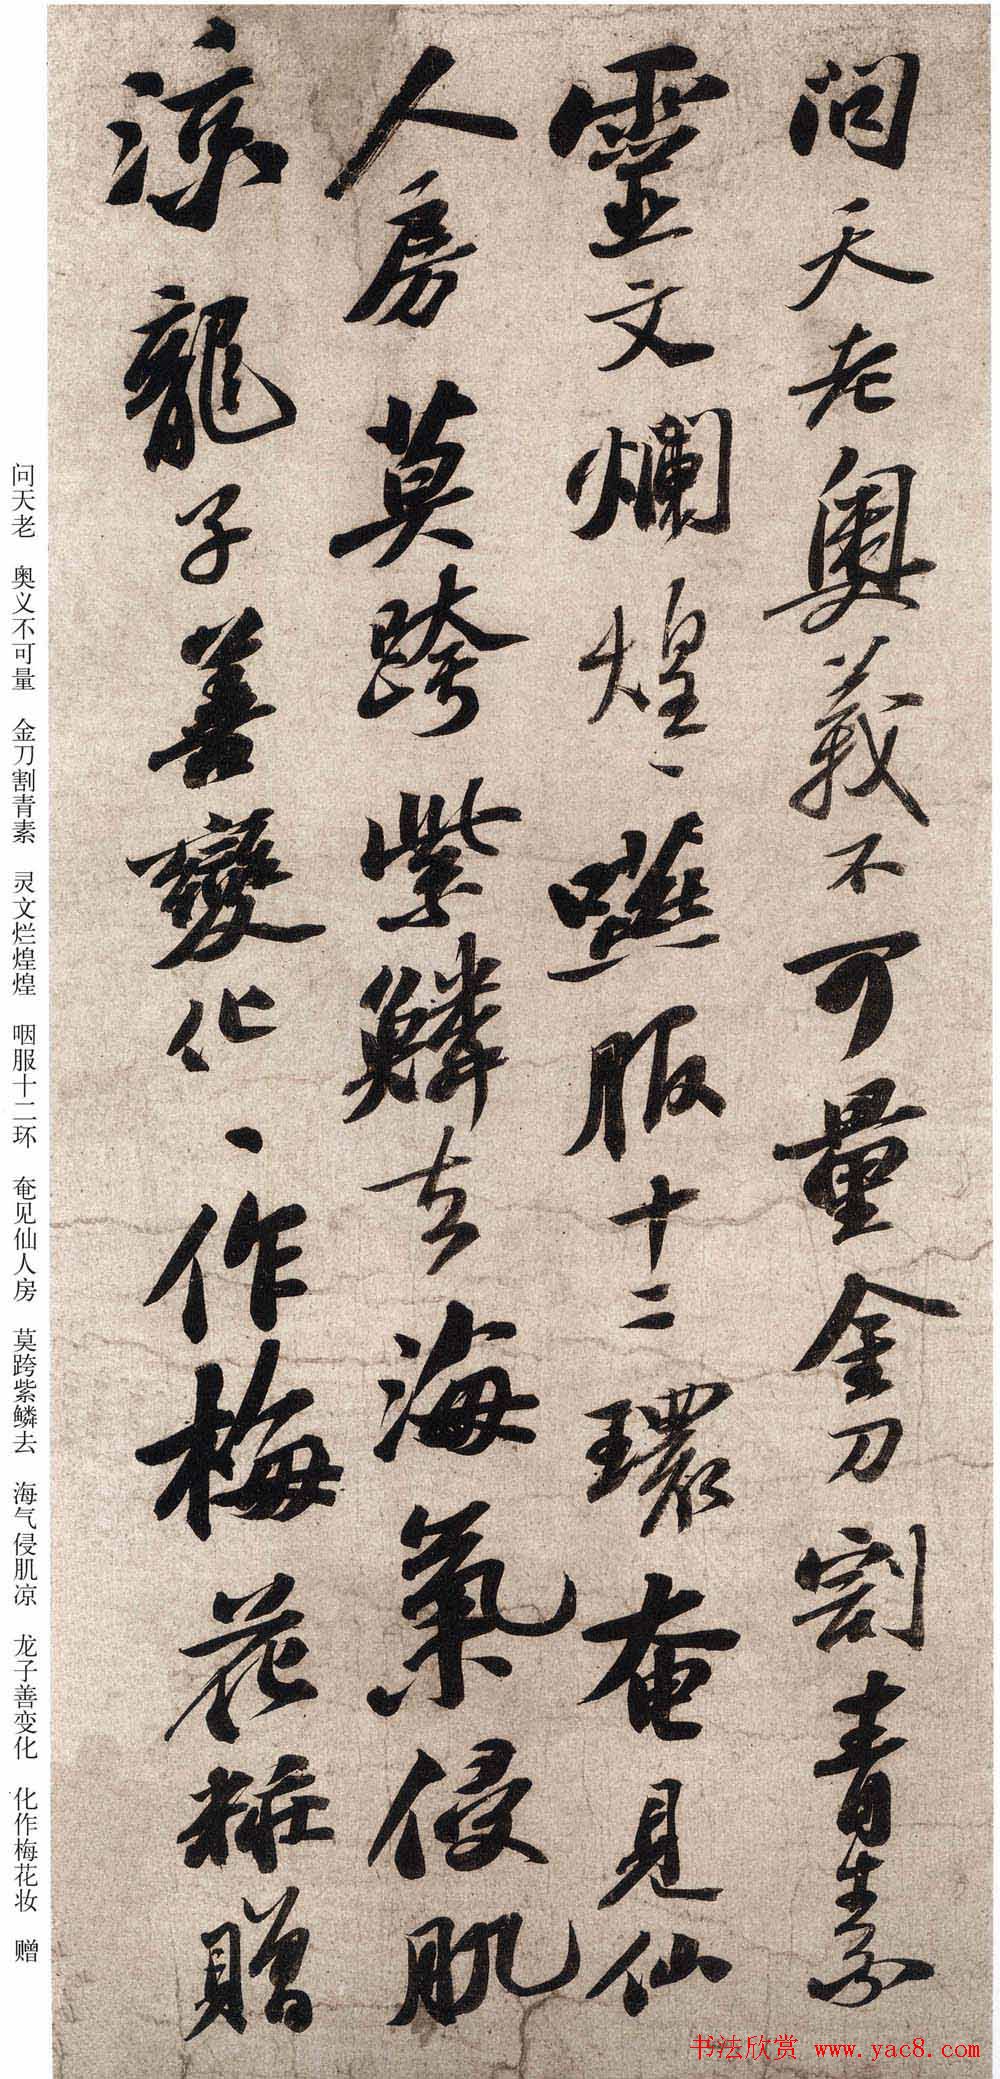 问天老奥義不可量金刀割青素
靈文爛煌煌嚥服十二環奄見仙
人房莫跨紫鱗去海氣侵肌
涼龍子善變化丶作梅花粧贈
问天老 奥义不可量 金刀割青素 灵文烂煌煌 咽服十二环 奄见仙人房 莫跨紫鳞去 海气侵肌凉 龙子善变化 化作梅花妆 赠
书法欣赏 www.yac8.com